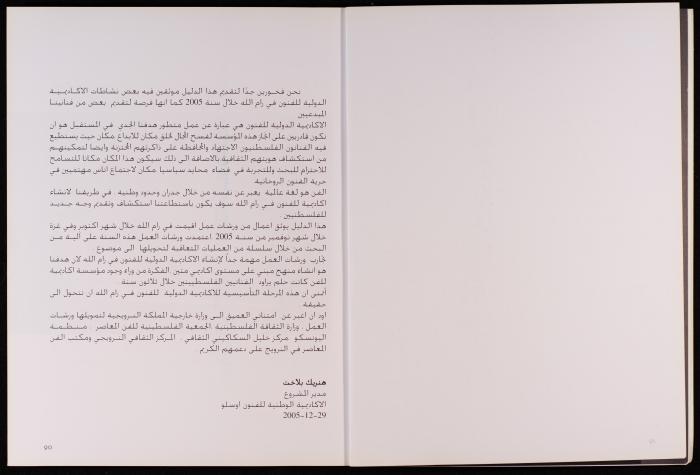 نحن فخورين جدًا لتقديم هذا الدليل موثقين فيه بعض نشاطات الاكاديمية
الدولية للفنون في رام الله خلال سنة 2005 كما انها فرصة لتقديم بعض من فنانينا
المبدعيين
الاكاديمية الدولية للفنون هي عبارة عن عمل متطور هدفنا الجدي في المستقبل هو ان
نكون قادريين على انجاز هذه المؤسسة لفسح المجال لخلق مكان للابداع. مكان حيث يستطيع
فيه الفنانون الفلسطنيون الاجتهاد والمحافظة على ذاكرتهم المختزنة وايضا لتمكينهم
من استكشاف هويتهم الثقافية بالاضافة الى ذلك سيكون هذا المكان مكانا للتسامح
للاحترام للبحث وللتجربة في فضاء محايد سياسيا مكان لاجتماع اناس مهتميين في
حرية الفنون الروحانية.
الفن هو لغة عالمية يعبر عن نفسه من خلال جدران وحدود وطنية . في طريقنا لانشاء
اكاديمية للفنون في رام الله سوف يكون باستطاعتنا استكشاف وتقديم وجه جديد
للفلسطنيين.
هذا الدليل يوثق اعمال من ورشات عمل اقيمت في رام الله خلال شهر اكتوبر وفي غزة
خلال شهر نوفمبر من سنة 2005 اعتمدت ورشات العمل هذه السنة على الية من
البحث من خلال سلسلة من العمليات المتعاقبة لتحويلها الى موضوع .
تجارب ورشات العمل مهمة جداً لإنشاء الاكاديمية الدولية للفنون في رام الله لان هدفنا
هو انشاء منهج مبني على مستوى اكاديمي متين الفكرة من وراء وجود مؤسسة اكاديمية
للفن كانت حلم يراود الفنانيين الفلسطينيين خلال ثلاثون سنة.
أتمنى ان هذه المرحلة التأسيسية للاكاديمية الدولية للفنون في رام الله ان تتحول الى
حقيقة.
اود ان اعبر عن امتناني العميق الى وزارة خارجية المملكة النرويجية لتمويلها ورشات
العمل . وزارة الثقافة الفلسطينية. الجمعية الفلسطينية للفن المعاصر . منظمة
اليونسكو. مركز خليل السكاكيني الثقافي . المركز الثقافي النرويجي ومكتب الفن
المعاصر في النرويج على دعمهم الكريم.
هنريك بلاخت
مدير المشروع
الاكاديمية الوطنية للفنون اوسلو
29-12-2005
90